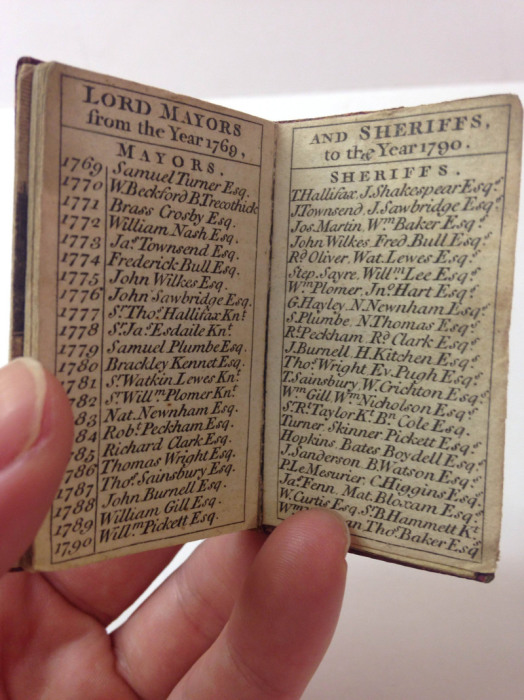 LORD MAYORS
from the Year 1769,
MAYORS.
1769 Samuel Turner Esq.
1770 W.Beckford B.Trecothick
1771 Brass Crosby Esq.
1772 William Nash Esq.
1773 Jaˢ. Townsend Esq.
1774 Frederick Bull Esq.
1775 John Wilkes Esq.
1776 John Sawbridge Esq.
1777 Sʳ. Thoˢ. Hallifax Knᵗ.
1778 Sʳ. Jaˢ. Esdaile Knᵗ.
1779 Samuel Plumbe Esq.
1780 Brackley Kennet Esq.
1781 Sʳ. Watkin Lewes Knᵗ.
1782 Sʳ. Willᵐ. Plomer Knᵗ.
83 Nat. Newnham Esq.
84 Robᵗ. Peckham Esq.
85 Richard Clark Esq.
1786 Thomas Wright Esq.
1787 Thoˢ. Sainsbury Esq.
1788 John Burnell Esq.
1789 William Gill Esq.
1790 Willᵐ. Pickett Esq.
AND SHERIFFS,
to the Year 1790.
SHERIFFS.
T.Hallifax J.Shakespear Esqʳˢ.
J.Townsend J.Sawbridge Esqʳˢ.
Jos. Martin Wᵐ. Baker Esqʳˢ.
John Wilkes Fred. Bull Esqʳˢ.
Rᵈ. Oliver Wat. Lewes Esqʳˢ.
Step. Sayre Willᵐ. Lee Esqʳˢ.
Wᵐ. Plomer Jnº. Hart Esqʳˢ.
G.Hayley N.Newnham Esqʳˢ.
S.Plumbe N.Thomas Esqʳˢ.
Rᵗ. Peckham Rᵈ. Clark Esqʳˢ.
J.Burnell H.Kitchen Esqʳˢ.
Thoˢ. Wright Ev. Pugh Esqʳˢ.
T.Sainsbury W.Crichton Esqʳˢ.
Wᵐ. Gill Wᵐ. Nicholson Esqʳˢ.
Sʳ. Rᵗ. Taylor Kᵗ. Bⁿ. Cole Esq.
Turner Skinner Pickett Esqʳˢ.
Hopkins Bates Boydell Esqʳˢ.
J.Sanderson B.Watson Esqʳˢ.
P.LeMesurier C.Higgins Esqʳˢ.
Jaˢ. Fenn Mat. Bloxam Esqʳˢ.
W.Curtis Esq. Sʳ. B.Hammett Kᵗ.
Thoˢ. Baker Esq